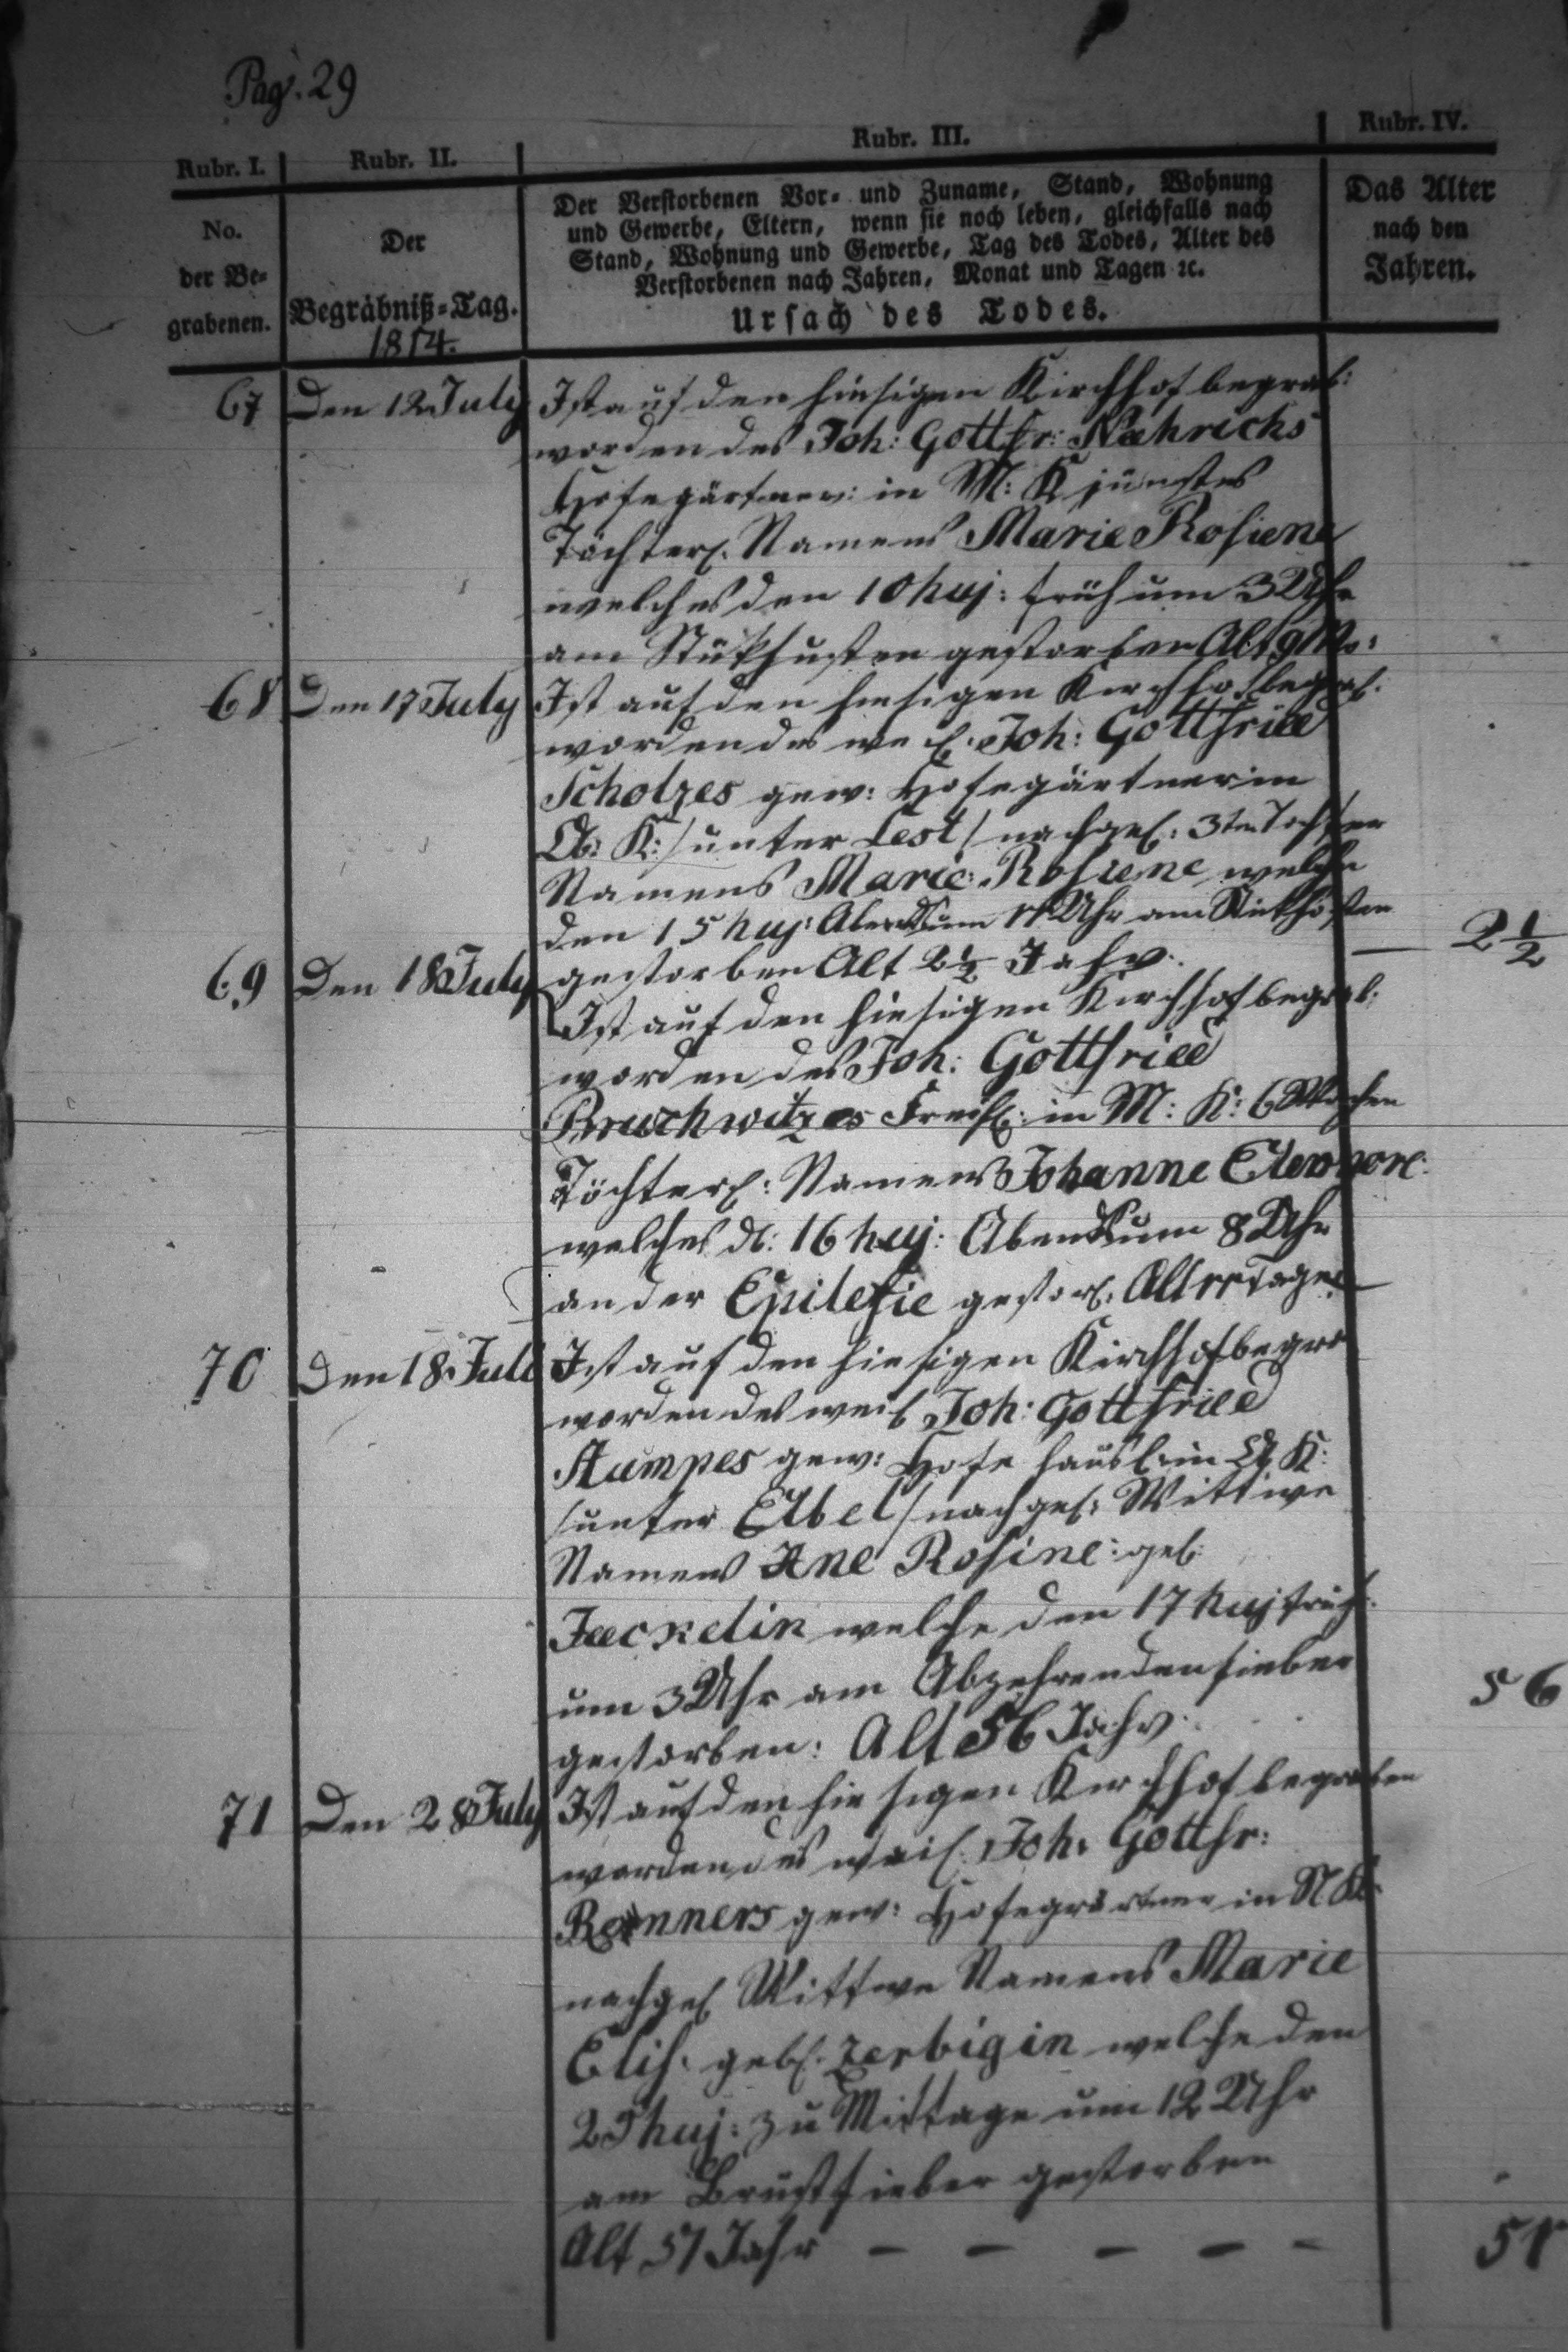 Pag. 29
Rubr. I. Rubr. II. Rubr. III. Rubr. IV.
No.
der Be-
grabenen.
Der
Begräbniß-Tag.
1814.
Der Verstorbenen Vor- und Zuname, Stand, Wohnung
und Gewerbe, Eltern, wenn sie noch leben, gleichfalls nach
Stand, Wohnung und Gewerbe, Tag des Todes, Alter des
Verstorbenen nach Jahren, Monat und Tagen ꝛc.
Ursach des Todes.
Das Alter
nach den
Jahren.
67 Den 12 July Ist auf den hiesigen Kirchhof begrab:
worden des Joh: Gottfr: Naehrichs
Hofegärtner: in M: K jüngstes
Töchterl. Namens Marie Rosiene
welches den 10 huj: früh um 3 Uhr
am Stükhusten gestorben Alt 9 Mo:
68 Den 17 July Ist auf den hiesigen Kirchhof begrab.
worden des weil. Joh: Gottfried
Scholzes gew: Hofegärtner in
K: /unter Lest/ nachgel: 3te Tochter
Namens Marie Rosiene welche
den 15 huj: Abends um 11 Uhr am Stükhusten
gestorben Alt 2½ Jahr. — 2½
69 Den 18 July
Ist auf den hiesigen Kirchhof begrab:
worden des Joh: Gottfried
Bruschwitzes Freih: in M: K: 6 Wochen
Töchterl: Namens Johanne Eleonore
welches d: 16 huj: Abends um 8 Uhr
an der Epilefie gestorb. Alt 11 Tage
70 Den 18. Juli Ist auf den hiesigen Kirchhof begra
worden des weil Joh: Gottfried
Stumpes gew: Hofe häusl: in K:
/unter Eibel/ nachgel: Wittwe
Namens Ane Rosine: geb:
Jaeckelin welche den 17 huj früh:
um 3 Uhr am Abzehrenden fieber
gestorben: Alt 56 Jahr. 56
71 Den 28 July Ist auf den hiesigen Kirchhof begraben
worden des weil. Joh: Gottfr:
Renners gew: Hofegärtner in N K:
nachgel Wittwe Namens Marie
Elis. geb. Zerbigin welche den
25 huj: zu Mittage um 12 Uhr
am Brustfieber gestorben
Alt 51 Jahr — — — — — 51